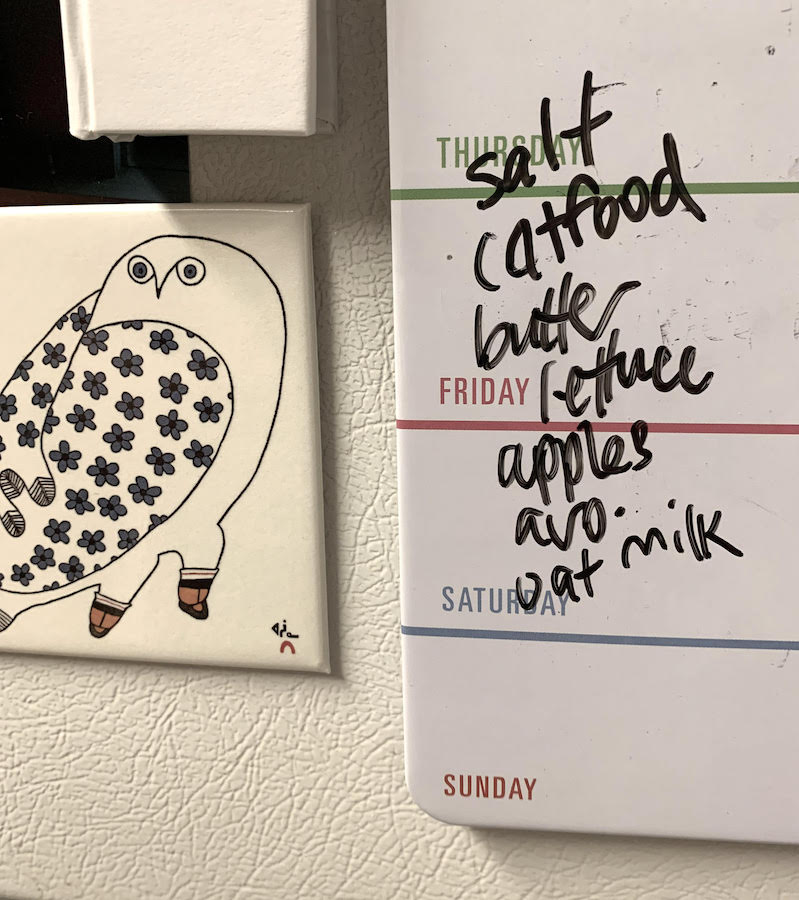 THURSDAY
salt
catfood
butter
FRIDAY
lettuce
apples
avo.
oat milk
SATURDAY
SUNDAY